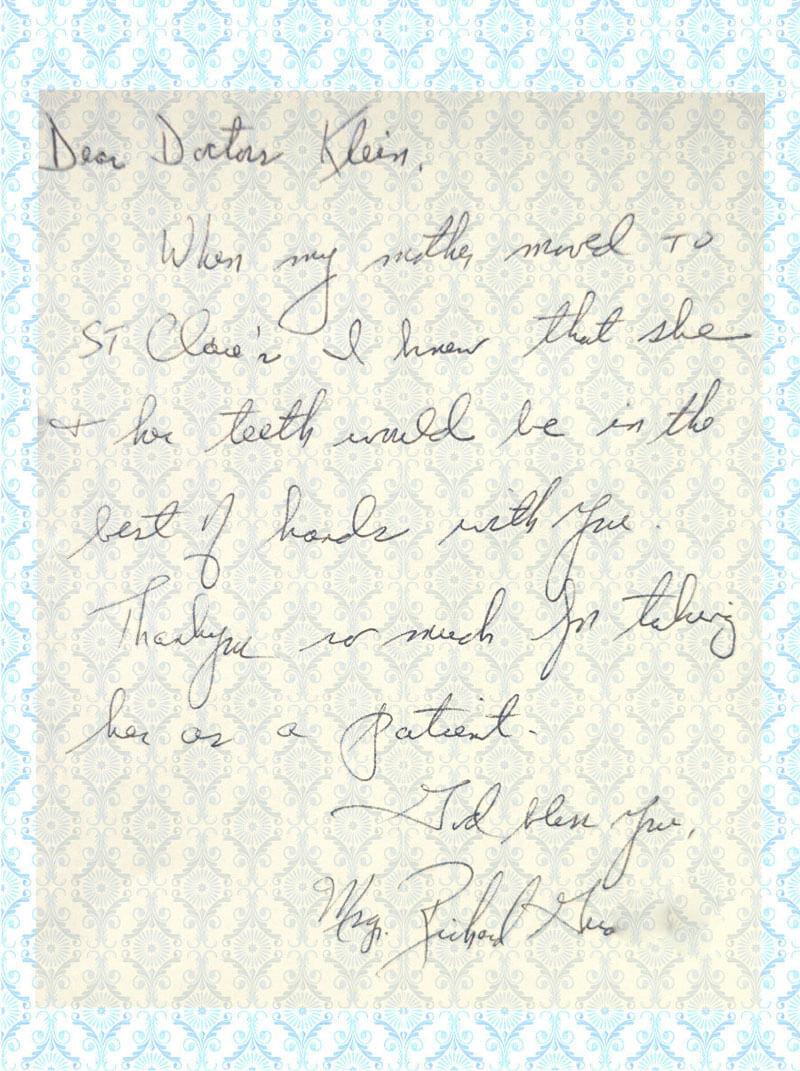 Dear Doctors Klein,
When my mother moved to
St Clare's I knew that she
+ her teeth would be in the
best of hands with you.
Thank you so much for taking
her as a patient.
God bless you,
Msgr. Richard